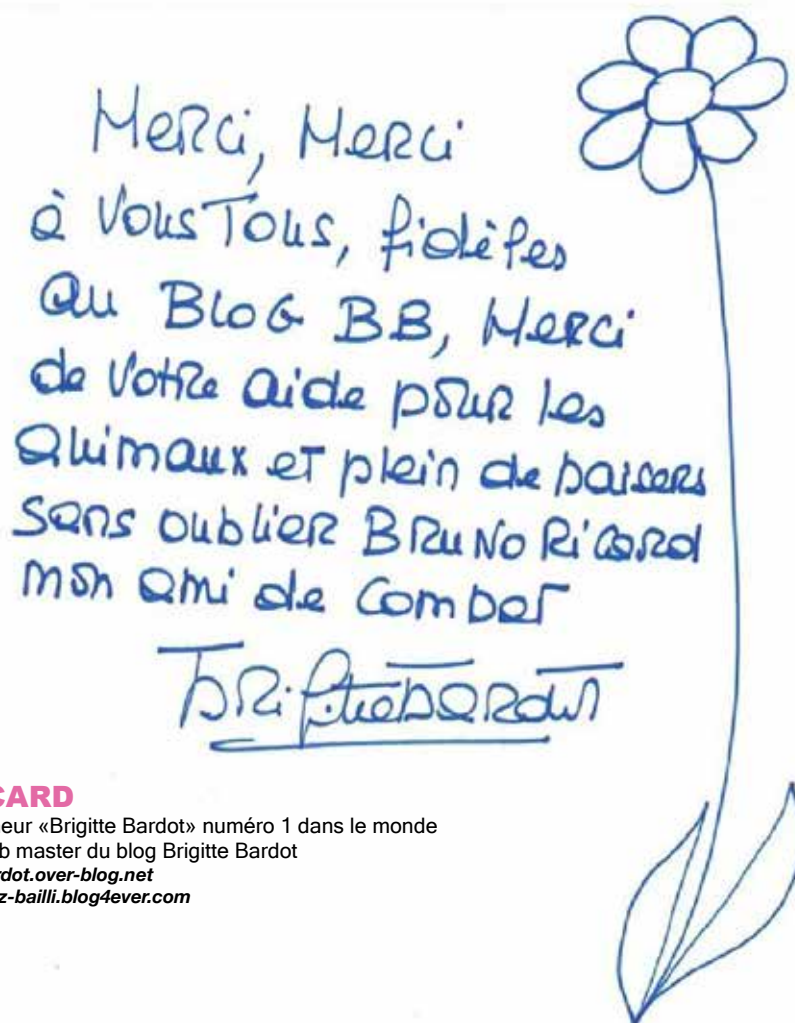 Merci, Merci
à Vous Tous, fidèles
au BLOG BB, Merci
de Votre aide pour les
animaux et plein de baisers
sans oublier BRUNO Ricard
mon ami de Combat
Brigitte Bardot
CARD
eur «Brigitte Bardot» numéro 1 dans le monde
b master du blog Brigitte Bardot
rdot.over-blog.net
z-bailli.blog4ever.com